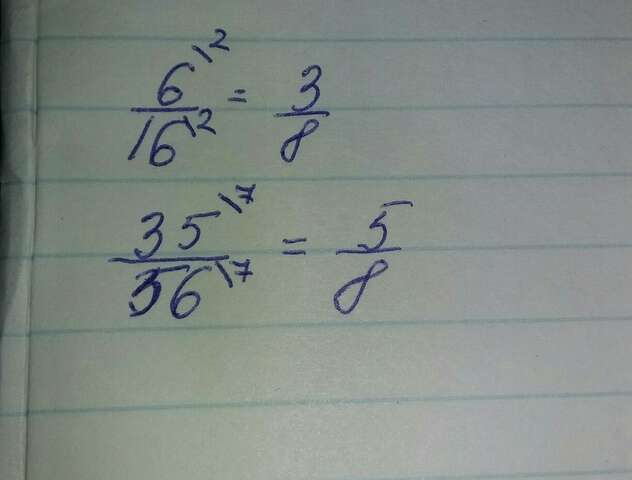 6\2/16\2 = 3/8
35\7/56\7 = 5/8